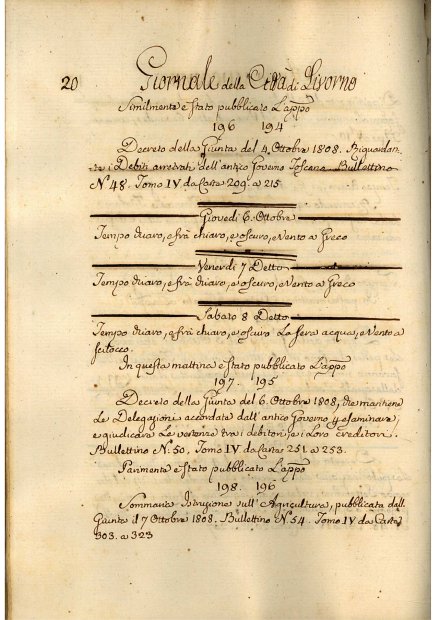 20 Giornale della Città di Livorno
Similmente è stato pubblicato L'appo
196 194
Decreto della Giunta del 4 Ottobre 1808. Riguardan
te i Debiti arretrati dell'antico Governo Toscano Bullettino
N.º 48. Tomo IV da Carte 209. a 215
Giovedi 6. Ottobre
Tempo chiaro, e frà chiaro, e oscuro, e Vento a Greco
Venerdi 7 Detto
Tempo chiaro, e frà chiaro, e oscuro, e Vento a Greco
Sabato 8 Detto
Tempo chiaro, e frà chiaro, e oscuro La sera acqua, e Vento a
Scilocco.
In questa mattina è stato pubblicato L'appo
197. 195
Decreto della Giunta del 6. Ottobre 1808, che mantiene
le Delegazioni accordate dall'antico Governo p esaminare,
e giudicare Le vertenze tra i debitori, e i Loro creditori.
Bullettino N. 50. Tomo IV. da Carte 251. a 253.
Parimente è stato pubblicato L'appo
198. 196
Sommaria Istruzione sull'Agricoltura, pubblicata dalla
Giunta il 7 Ottobre 1808. Bullettino N. 54. Tomo IV da Carte
303. a 323